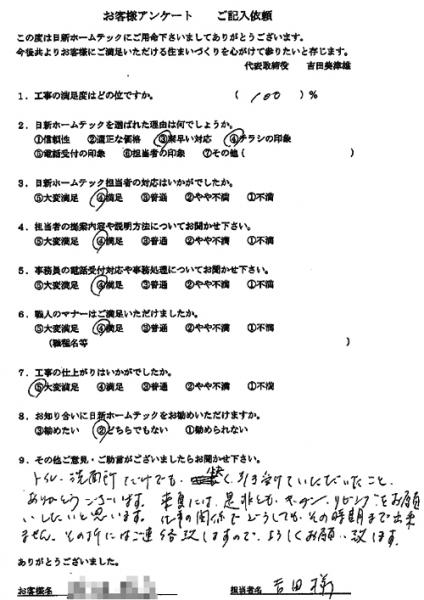 お客様アンケート ご記入依頼
この度は日新ホームテックにご用命下さいましてありがとうございます。
今後共よりお客様にご満足いただける住まいづくりを心がけて参りたいと存じます。
代表取締役 吉田美津雄
1．工事の満足度はどの位ですか。 （ 100 ）％
2．日新ホームテックを選ばれた理由は何でしょうか。
①信頼性 ②適正な価格 ③素早い対応 ④チラシの印象
⑤電話受付の印象 ⑥担当者の印象 ⑦その他（ ）
3．日新ホームテック担当者の対応はいかがでしたか。
⑤大変満足 ④満足 ③普通 ②やや不満 ①不満
4．担当者の提案内容や説明方法についてお聞かせ下さい。
⑤大変満足 ④満足 ③普通 ②やや不満 ①不満
5．事務員の電話受付対応や事務処理についてお聞かせ下さい。
⑤大変満足 ④満足 ③普通 ②やや不満 ①不満
6．職人のマナーはご満足いただけましたか。
⑤大変満足 ④満足 ③普通 ②やや不満 ①不満
（職種名等 ）
7．工事の仕上がりはいかがでしたか。
⑤大変満足 ④満足 ③普通 ②やや不満 ①不満
8．お知り合いに日新ホームテックをお勧めいただけますか。
③勧めたい ②どちらでもない ①勧められない
9．その他ご意見・ご助言がございましたらお聞かせ下さい。
トイレ、洗面所だけでも、快く引き受けていただいたこと、
ありがとうございます。来春には、是非とも、キッチン、リビングをお願
いしたいと思います。仕事の関係でどうしても、その時期まで出来
ません。その折にはご連絡致しますので、よろしくお願い致します。
ありがとうございました。
お客様名 担当者名 吉田様